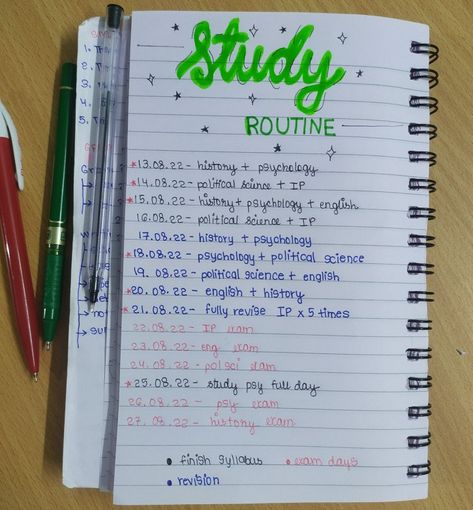 Study
ROUTINE
*13.08.22 - history + psychology
*14.08.22 - political science + IP
*15.08.22 - history + psychology + english
16.08.22 - political science + IP
17.08.22 - history + psychology
*18.08.22 - psychology + political science
19.08.22 - political science + english
*20.08.22 - english + history
*21.08.22 - fully revise IP x 5 times
22.08.22 - IP exam
23.08.22 - eng exam
24.08.22 - pol sci exam
*25.08.22 - study psy full day
26.08.22 - psy exam
27.08.22 - history exam
• finish syllabus • exam days
• revision
1.
2.
3.
4.
5.